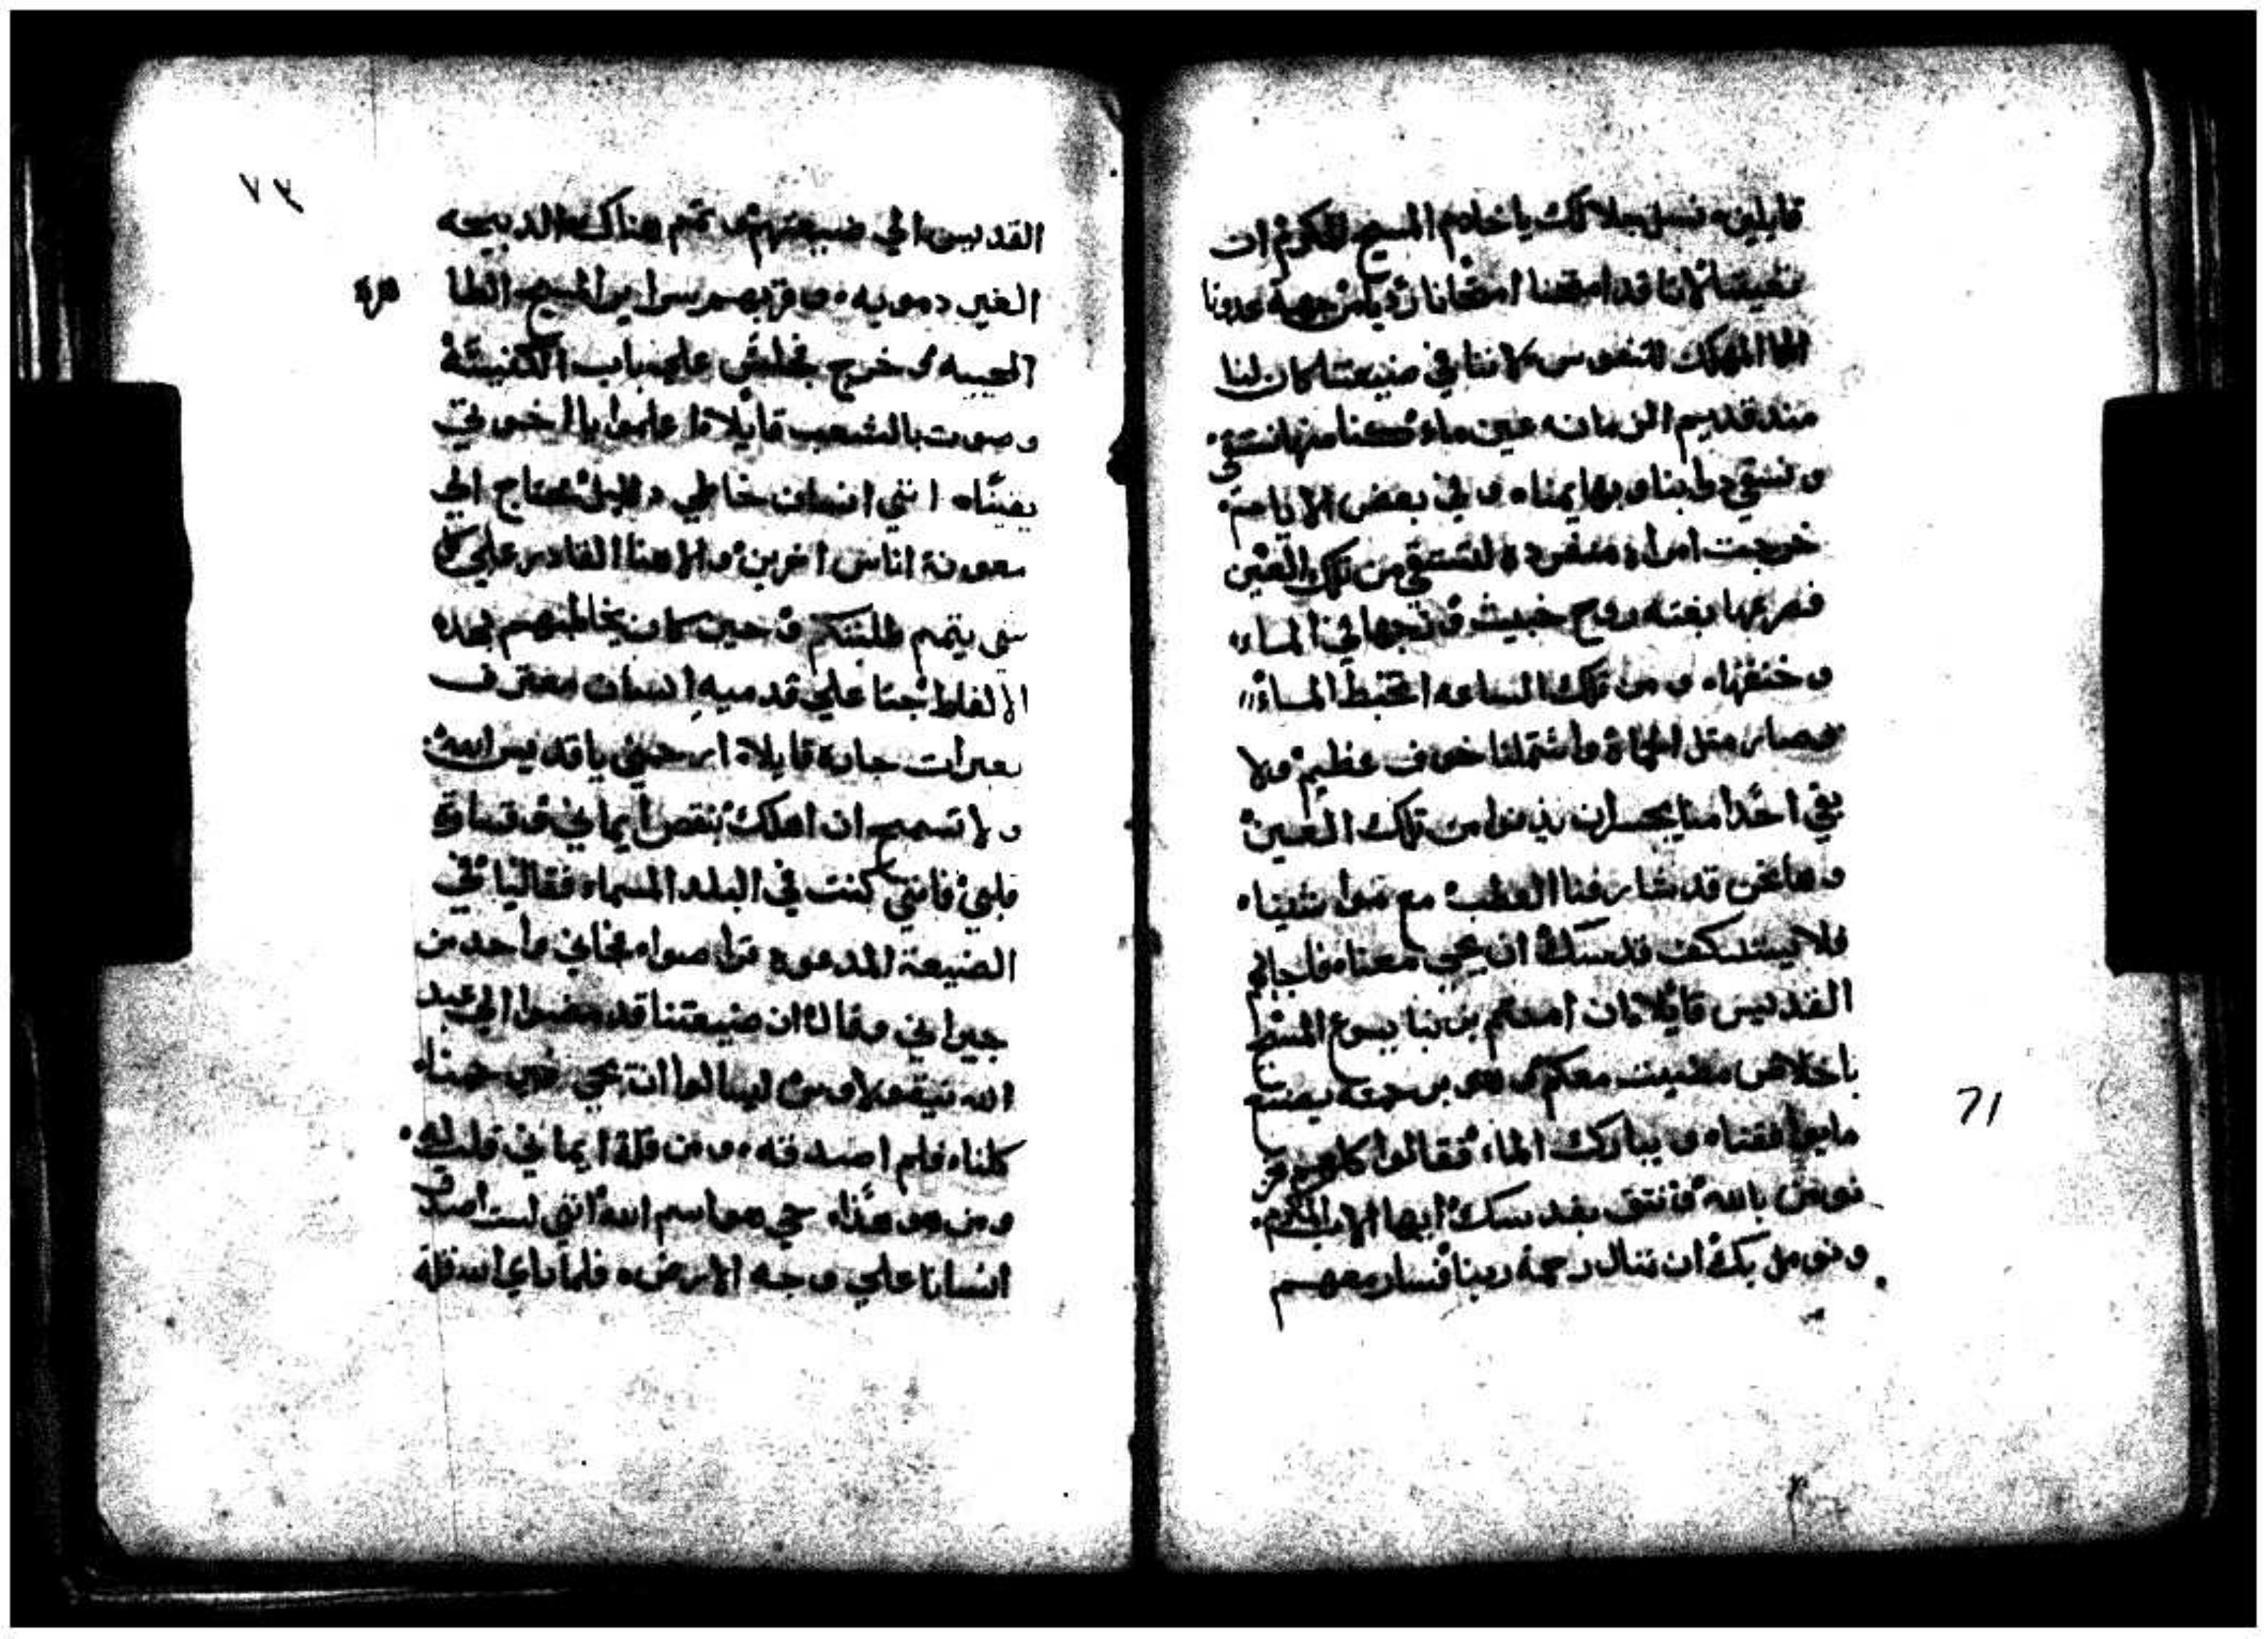 قايلين، نسل جلالك يا خادم المسيح المكرم ان
تغيثنا لاننا قد امتحنا امتحانا رديا من جهة عدونا
المهلك للنفوس لاننا في ضيعتنا كان لنا
مند قديم الزمان عين ماء وكنا منها نستقي
ونسقي دوابنا وبهايمنا، وفي بعض الايام
خرجت امراه منفرده لتستقي من تلك العين
فصرعها بغته روح خبيث وزجها في الماء،
وخنقها، ومن تلك الساعه اختبط الماء
وصار مثل الحماة واشتملنا خوف عظيم ولا
بقي احدا منا يجسر ان يدنوا من تلك العين
وها نحن قد شارفنا العطب مع مواشينا،
فلا يستنكف قدسك ان يجي معنا، فاجابهم
القديس قايلا، ان امنتم بربنا يسوع المسيح
باخلاص مضيت معكم وهو برحمته يصنع
ما يوافقنا، ويبارك الماء، فقالوا كلهم نحن
نومن بالله ونتق بقدسك ايها الاب المكرم،
ونومل بك ان ننال رحمة ربنا فسار معهم
71
٧٣
القديس الي ضيعتهم وتمم هناك الدبيحه
الغير دمويه، وقربهم سراير المسيح الطا
هرة
المحييه وخرج فجلس علي باب الكنيسة
وصوت بالشعب قايلا، اعلموا يا اخوتي
يقينًا، انني انسان خاطي دليل محتاج الي
معونة اناس اخرين والاهنا القادر علي كل
شي يتمم طلبتكم وحين كان يخاطبهم بهده
الالفاظ جتا علي قدميه انسان معترف
بعبرات حاره قايلا، ارحمني يا قديس الله
ولا تسمح ان اهلك بنقص ايماني وقساوة
قلبي فانني كنت في البلد المسماه فقاليا في
الضيعة المدعوه فجاني واحد من
جيراني وقال ان ضيعتنا قد مضوا الي عبد
الله نيقولاوس ليسالوا ان يجي
كلنا، فلم اصدقه، ومن قلة ايماني قلت له،
ومن هو هذا، حي هو اسم الله انني لست اصدق
انسانا علي وجه الارض، فلما راي الله قلة